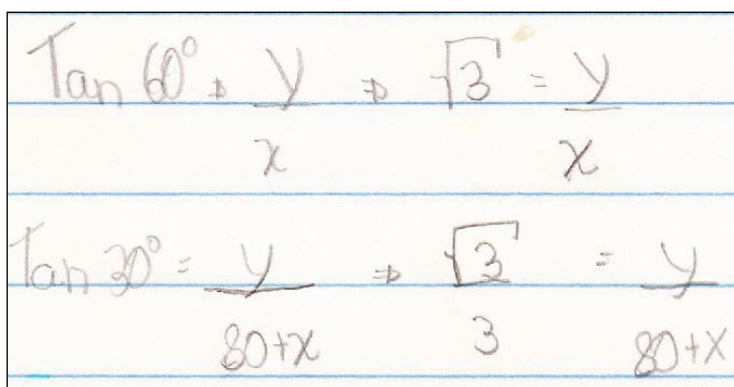 Tan 60° ⇒ y/x ⇒ √3 = y/x
Tan 30° = y/80+x ⇒ √3/3 = y/80+x